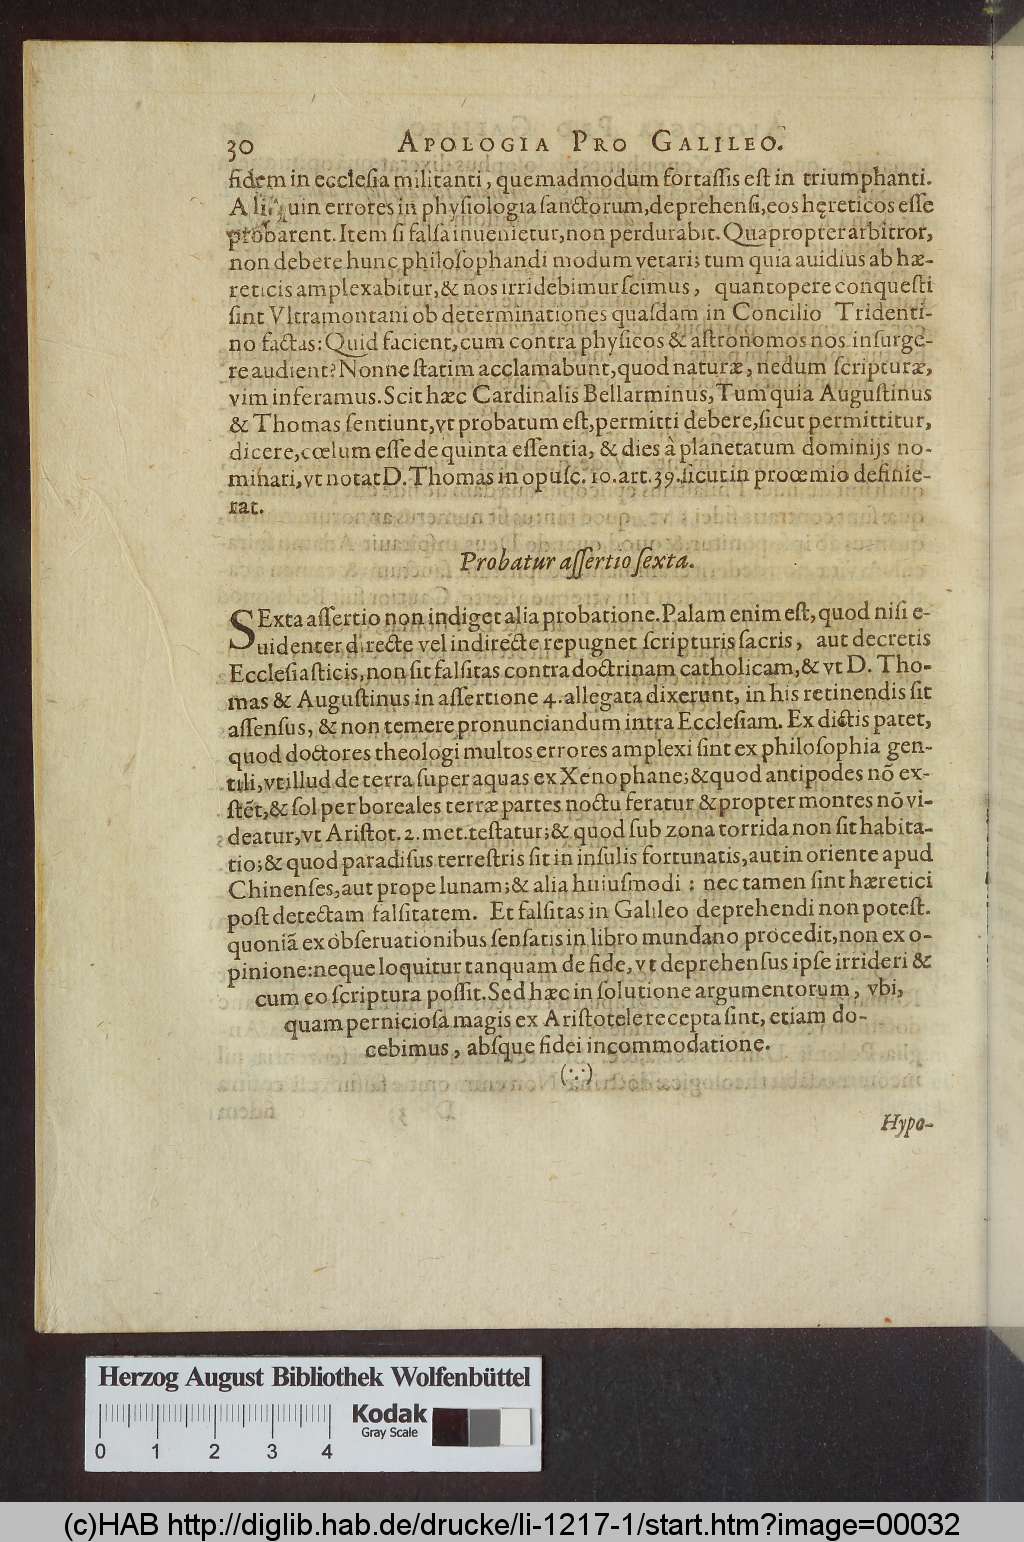 30 APOLOGIA PRO GALILEO.
fidem in ecclesia militanti, quemadmodum fortassis est in triumphanti.
Alioquin errores in physiologia sanctorum, deprehensi, eos hęreticos esse
probarent. Item si falsa inuenietur, non perdurabit. Quapropter arbitror,
non debere hunc philosophandi modum vetari; tum quia auidius ab hæ-
reticis amplexabitur, & nos irridebimur scimus, quantopere conquesti
sint Vltramontani ob determinationes quasdam in Concilio Tridenti-
no factas: Quid facient, cum contra physicos & astronomos nos insurge-
re audient? Nonne statim acclamabunt, quod naturæ, nedum scripturæ,
vim inferamus. Scit hæc Cardinalis Bellarminus, Tum quia Augustinus
& Thomas sentiunt, vt probatum est, permitti debere, sicut permittitur,
dicere, cœlum esse de quinta essentia, & dies à planetatum dominijs no-
minari, vt notat D. Thomas in opusc. 10. art. 39. sicut in proœmio definie-
rat.
Probatur assertio sexta.
SExta assertio non indiget alia probatione. Palam enim est, quod nisi e-
uidenter directe vel indirecte repugnet scripturis sacris, aut decretis
Ecclesiasticis, non sit falsitas contra doctrinam catholicam, & vt D. Tho-
mas & Augustinus in assertione 4. allegata dixerunt, in his retinendis sit
assensus, & non temere pronunciandum intra Ecclesiam. Ex dictis patet,
quod doctores theologi multos errores amplexi sint ex philosophia gen-
tili, vt illud de terra super aquas ex Xenophane; & quod antipodes nõ ex-
stẽt, & sol per boreales terræ partes noctu feratur & propter montes nõ vi-
deatur, vt Aristot. 2. met. testatur; & quod sub zona torrida non sit habita-
tio; & quod paradisus terrestris sit in insulis fortunatis, aut in oriente apud
Chinenses, aut prope lunam; & alia huiusmodi: nec tamen sint hæretici
post detectam falsitatem. Et falsitas in Galileo deprehendi non potest.
quoniã ex obseruationibus sensatis in libro mundano procedit, non ex o-
pinione: neque loquitur tanquam de fide, vt deprehensus ipse irrideri &
cum eo scriptura possit. Sed hæc in solutione argumentorum, vbi,
quam perniciosa magis ex Aristotele recepta sint, etiam do-
cebimus, absque fidei incommodatione.
(∵)
Hypo-
Herzog August Bibliothek Wolfenbüttel
Kodak
Gray Scale
0 1 2 3 4
(c)HAB http://diglib.hab.de/drucke/li-1217-1/start.htm?image=00032